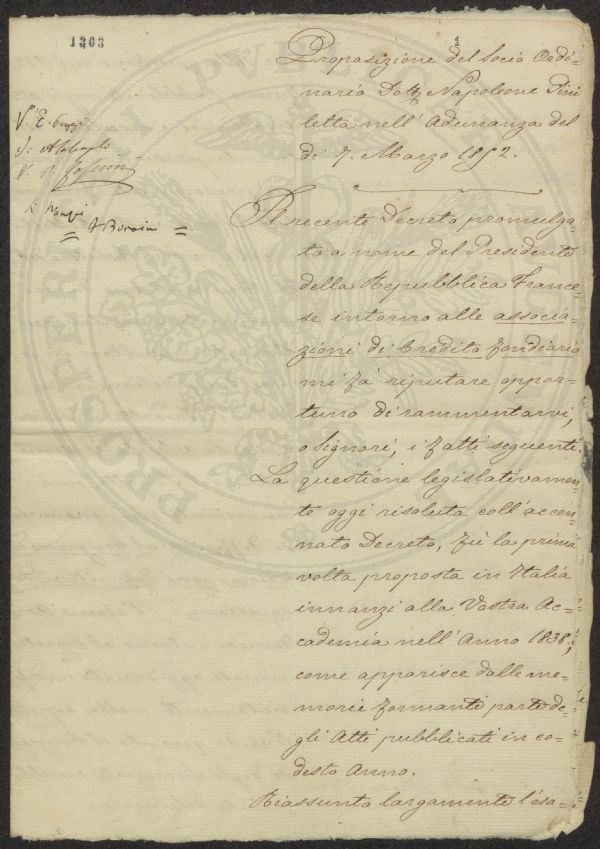 1303
1
Proposizione del Socio Ordi-
nario Dott. Napoleone Pini
letta nell'Adunanza del
di 7. Marzo 1852.
V. E.
A Buonini
Il recente Decreto promulga-
to a nome del Presidente
della Repubblica France-
se intorno alle associa-
zioni di Credito fondiario
mi fà riputare oppor-
tuno di rammentarvi,
o Signori, i fatti seguenti.
La questione legislativamen-
te oggi risoluta coll'accen-
nato Decreto, fù la prima
volta proposta in Italia
innanzi alla Vostra Ac-
cademia nell'Anno 1838;
come apparisce dalle me-
morie formanti parte de-
gli Atti pubblicati in co-
desto Anno.
Riassunto largamente l'esa-